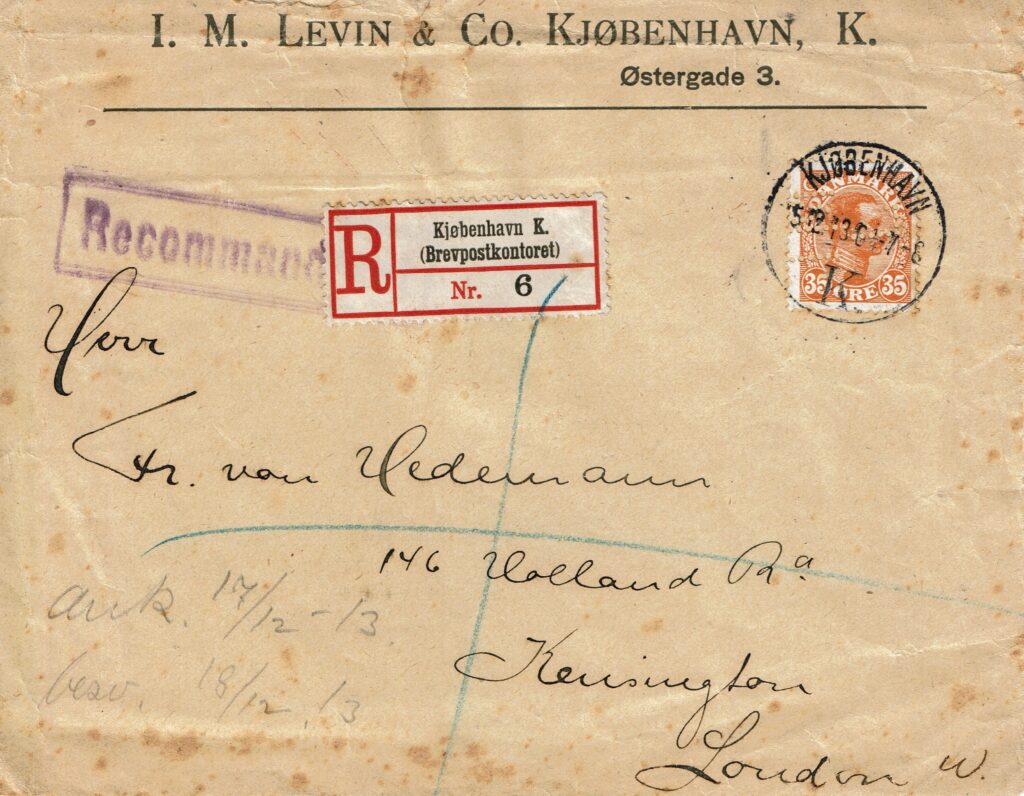 I. M. LEVIN & CO. KJØBENHAVN, K.
Østergade 3.
KJØBENHAVN
K.
DANMARK
35 ØRE 35
Recommand
R
Kjøbenhavn K.
(Brevpostkontoret)
Nr. 6
Herr
Fr. von Hedemann
146 Holland Rd.
Kensington
London W.
ank. 17/12 - 13.
besv. 18/12. 13